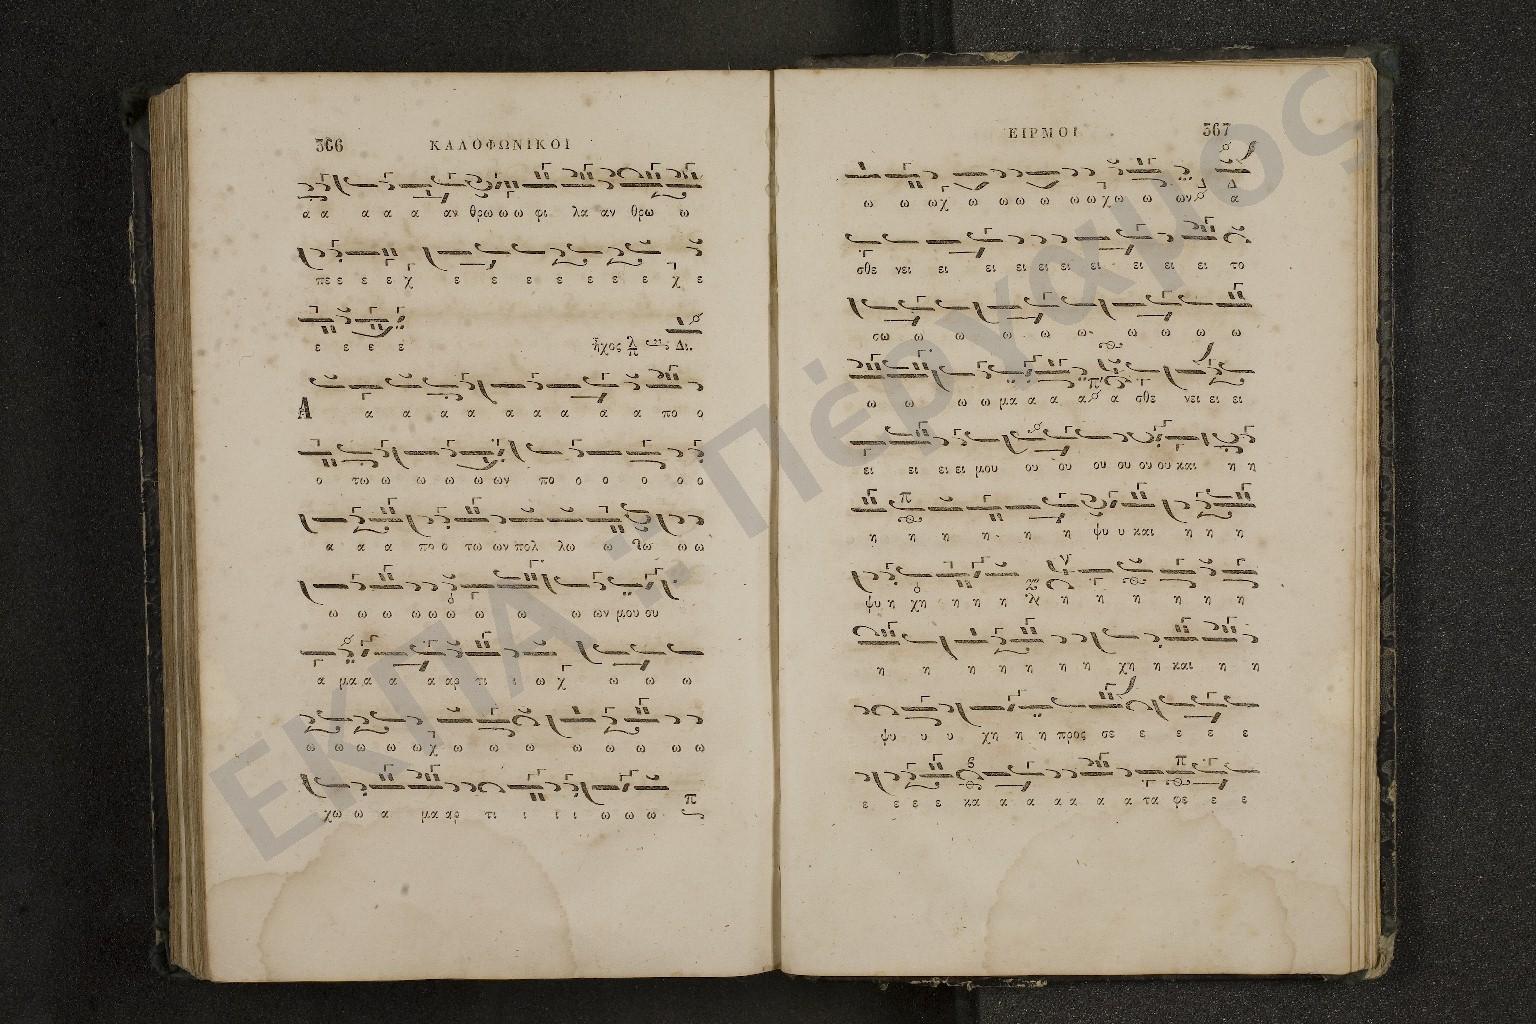 366 ΚΑΛΟΦΩΝΙΚΟΙ
α α α α α αν θρω ω ω φι λα αν θρω ω
πε ε ε ε χ ε ε ε ε ε ε ε χ ε
ε ε ε ε ἦχος Δι.
Α α α α α α α α α α πο ο
ο τω ω ω ω ω ων πο ο ο ο ο ο
α α α πο ο τω ων πολ λω ω λω ω ω
ω ω ω ω ω ω ω ω ω ων μου ου
α μα α α α αρ τι ι ω χ ω ω ω
ω ω ω ω ω χ ω ω ω ω ω ω ω ω
χω ω α μα αρ τι ι ι ι ω ω ω π
ΕΙΡΜΟΙ 367
ω ω ω χ ω ω ω ω ω ω χω ω ω ων α
σθε νει ει ει ει ει ει ει ει ει ει το
σω ω ω ω ω ω ω ω ω ω
ω ω ω ω μα α α α α σθε νει ει ει
ει ει ει ει μου ου ου ου ου ου ου και η η
η η η η η ψυ υ και η η η
ψυ η χη η η η η η η η η η η
η η η η η η η χη η και η η
ψυ υ υ χη η η προς σε ε ε ε ε
ε ε ε ε κα α α α α α α τα φε ε ε
ΕΚΠΑ :: Πέργαμος